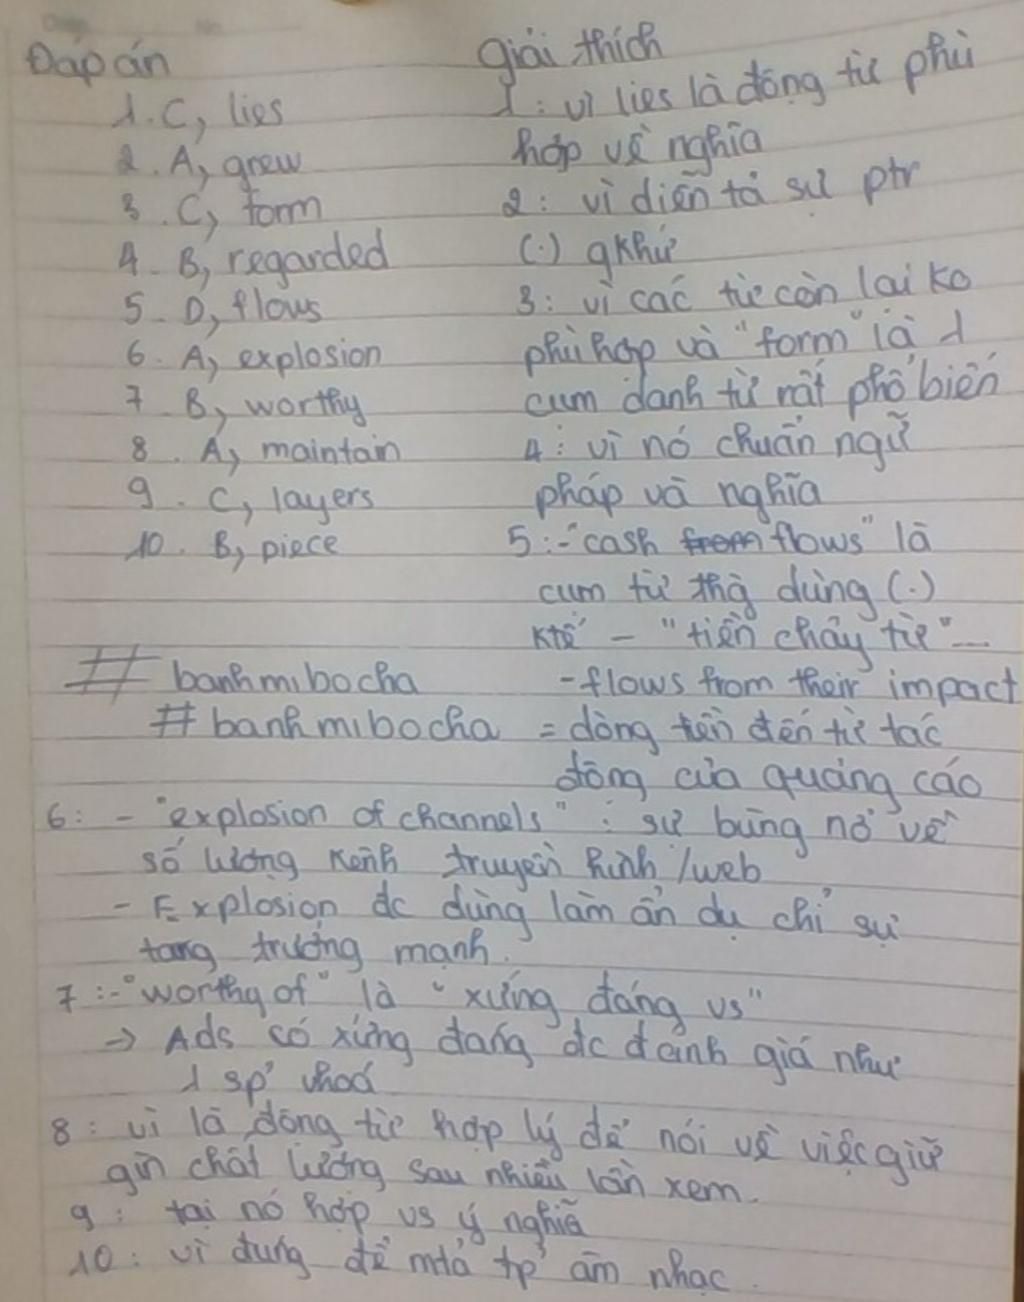 Đáp án
1. C, lies
2. A, grew
3. C, form
4. B, regarded
5. D, flows
6. A, explosion
7. B, worthy
8. A, maintain
9. C, layers
10. B, piece
# banhmibocha
# banhmibocha
giải thích
1: vì lies là động từ phù
hợp về nghĩa
2: vì diễn tả sự ptr
(.) qkhứ
3: vì các từ còn lại ko
phù hợp và "form" là 1
cụm danh từ rất phổ biến
4: vì nó chuẩn ngữ
pháp và nghĩa
5: - "cash from flows" là
cụm từ thg dùng (.)
ktế - "tiền chảy từ" ...
- flows from their impact
= dòng tiền đến từ tác
động của quảng cáo
6: - "explosion of channels" : sự bùng nổ về
số lượng kênh truyền hình /web
- Explosion đc dùng làm ẩn dụ chỉ sự
tăng trưởng mạnh.
7: - "worthy of" là "xứng đáng vs"
→ Ads có xứng đáng đc đánh giá như
1 sp' vhoá
8: vì là động từ hợp lý để nói về việc giữ
gìn chất lượng sau nhiều lần xem.
9: tại nó hợp vs ý nghĩa
10: vì dùng để mtả tp' âm nhạc.